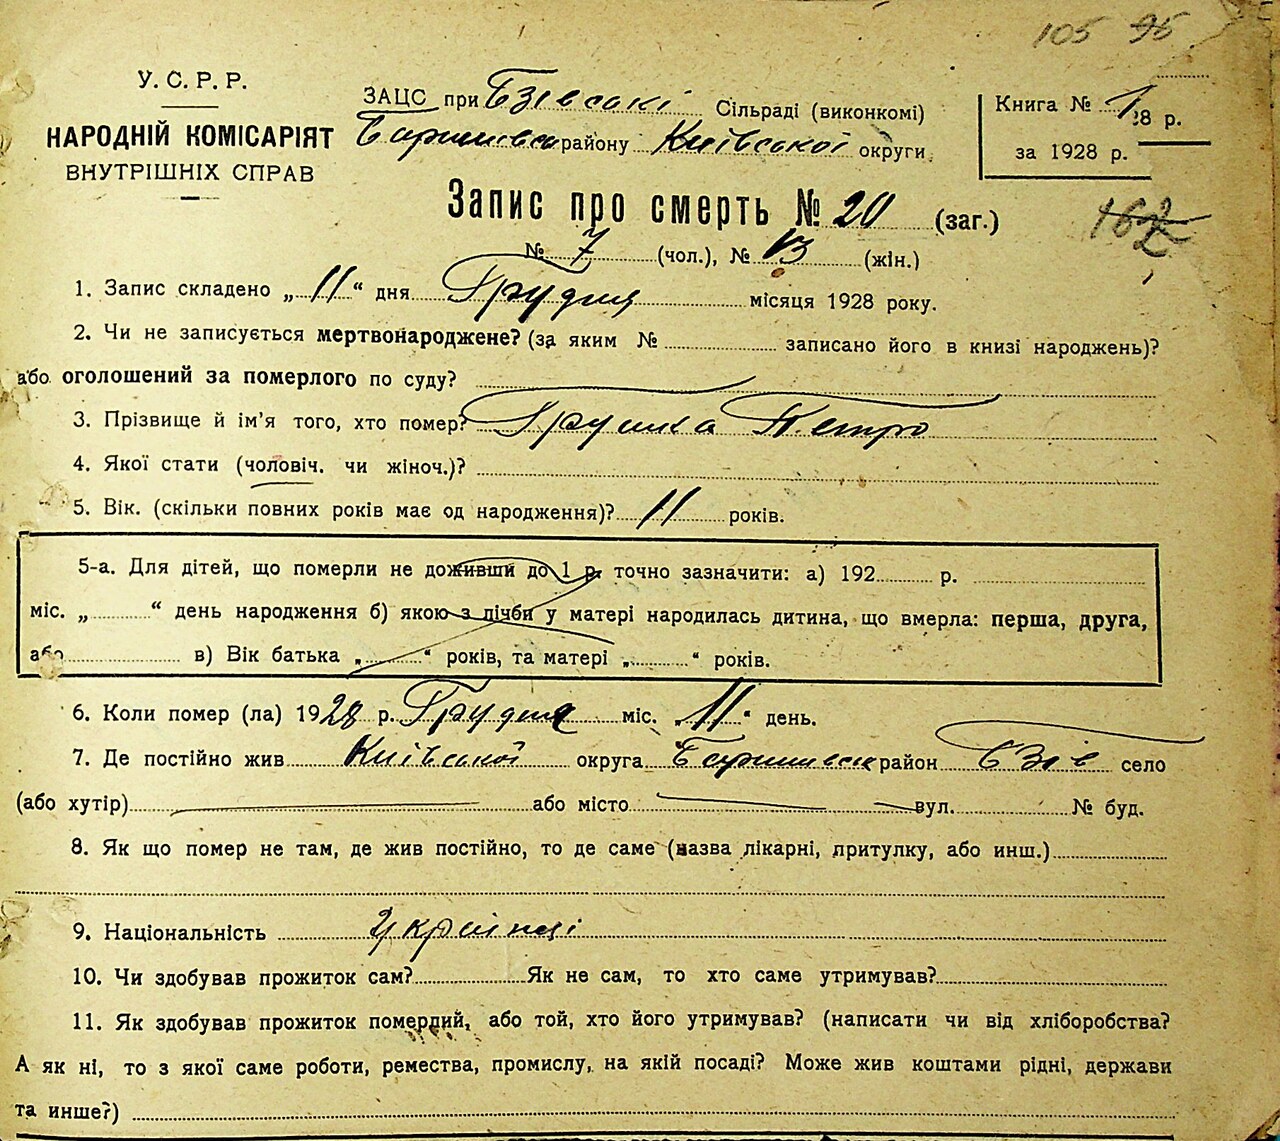 105 95
У. С. Р. Р.
НАРОДНІЙ КОМІСАРІЯТ
ВНУТРІШНІХ СПРАВ
ЗАЦС при Бзівські Сільраді (виконкомі)
Баришівськ району Київської округи
Книга № 1
28 р.
за 1928 р.
Запис про смерть № 20 (заг.)
№ 7 (чол.), № 13 (жін.)
1. Запис складено „ 11 “ дня Грудня місяця 1928 року.
2. Чи не записується мертвонароджене? (за яким № записано його в книзі народжень)?
або оголошений за померлого по суду?
3. Прізвище й ім’я того, хто помер? Грушка Петро
4. Якої стати (чоловіч. чи жіноч.)?
5. Вік. (скільки повних років має од народження)? 11 років.
5-а. Для дітей, що померли не доживши до 1 р. точно зазначити: а) 192 р.
міс. „ “ день народження б) якою з лічби у матері народилась дитина, що вмерла: перша, друга,
або в) Вік батька „ “ років, та матері „ “ років.
6. Коли помер (ла) 1928 р. Грудня міс. „ 11 “ день.
7. Де постійно жив Київської округа Баришівськ район Бзів село
(або хутір) або місто вул. № буд.
8. Як що помер не там, де жив постійно, то де саме (назва лікарні, притулку, або инш.)
9. Національність українці
10. Чи здобував прожиток сам? Як не сам, то хто саме утримував?
11. Як здобував прожиток померлий, або той, хто його утримував? (написати чи від хліборобства?
А як ні, то з якої саме роботи, ремества, промислу, на якій посаді? Може жив коштами рідні, держави
та инше?)